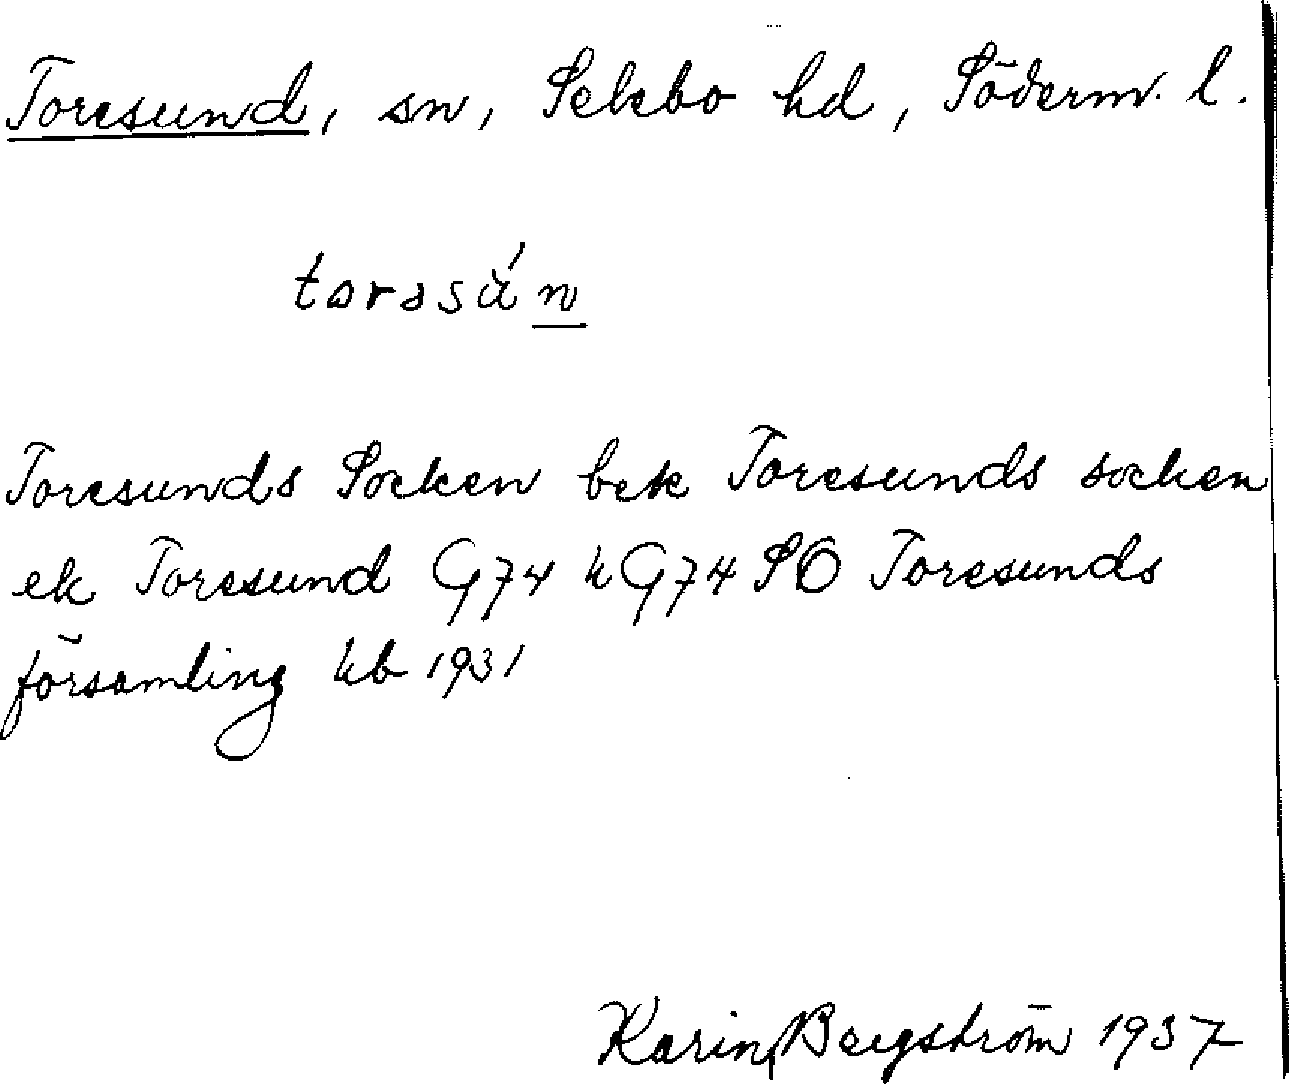 Toresund, sn, Selebo hd, Söderm. l.
Toresunds Socken bek Toresunds socken
ek Toresund G74 k G74 SO Toresunds
församling kb 1931
Karin Bergström 1937